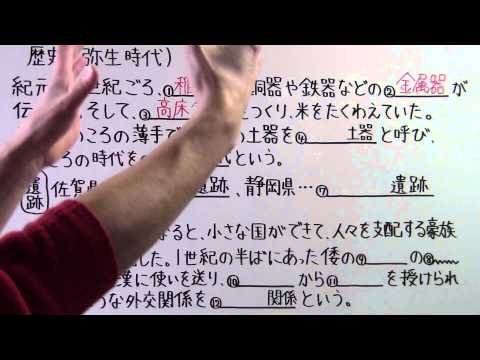 歴史 弥生時代)
紀元 世紀ごろ、① 稲 銅器や鉄器などの② 金属器 が
伝 そして、③ 高床 をつくり、米をたくわえていた。
のころの薄手で の土器を④ 土器 と呼び、
ころの時代を という。
遺跡 佐賀県 遺跡、静岡県…⑦ 遺跡
なると、小さな国ができて、人々を支配する豪族
した。1世紀の半ばにあった倭の⑨ の⑧
漢に使いを送り、⑩ から⑪ を授けられ
うな外交関係を⑫ 関係という。